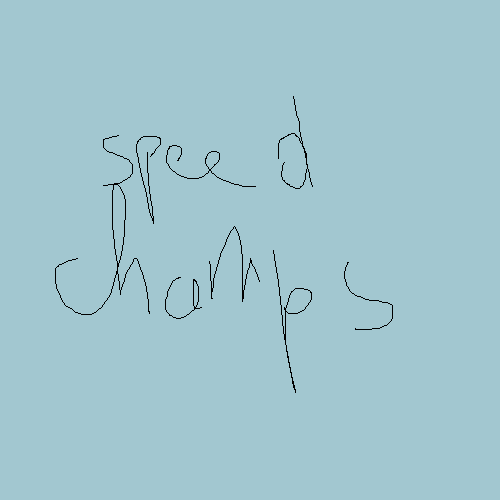 speed
champs